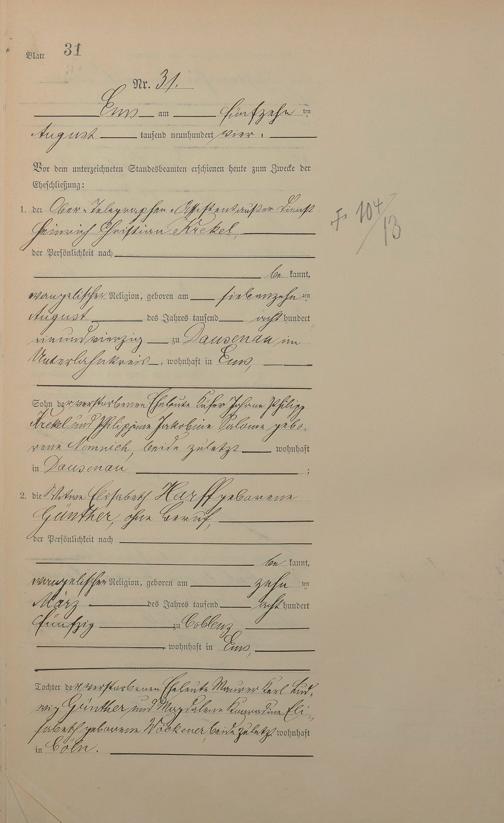 Blatt 31
Nr. 31.
Ems am fünfzehnten
August tausend neunhundert vier.
Vor dem unterzeichneten Standesbeamten erschienen heute zum Zwecke der
Eheschließung:
1. der Ober-Telegraphen-Assistent außer Dienst
Heinrich Christian Krekel,
der Persönlichkeit nach
be kannt,
evangelischer Religion, geboren am siebenzehnten
August des Jahres tausend acht hundert
neunundvierzig zu Dausenau im
Unterlahnkreis, wohnhaft in Ems,
Sohn der verstorbenen Eheleute Küfer Johann Philipp
Krekel und Philippine Jakobine Salome gebo-
rene, beide zuletzt wohnhaft
in Dausenau ;
2. die Witwe Elisabeth Harff geborene
Günther, ohne Beruf,
der Persönlichkeit nach
be kannt,
evangelischer Religion, geboren am zehnten
März des Jahres tausend acht hundert
fünfzig zu Coblenz
, wohnhaft in Ems,
Tochter der verstorbenen Eheleute Maurer Karl Lud-
wig Günther und Magdalene Eli-
sabeth geborene, beide zuletzt wohnhaft
in Cöln.
104/13